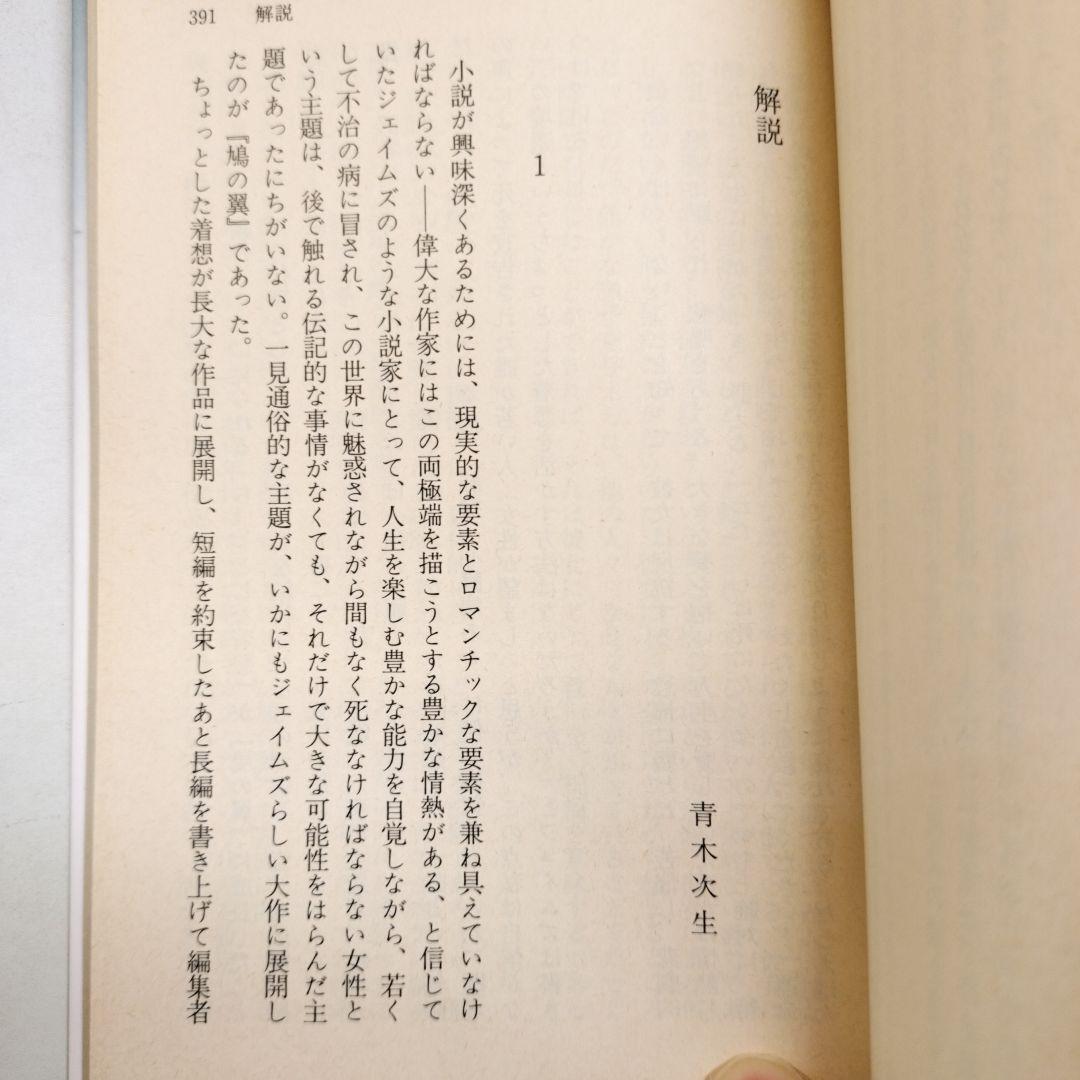 391 解説
解説
青木次生
1
小説が興味深くあるためには、現実的な要素とロマンチックな要素を兼ね具えていなけ
ればならない――偉大な作家にはこの両極端を描こうとする豊かな情熱がある、と信じて
いたジェイムズのような小説家にとって、人生を楽しむ豊かな能力を自覚しながら、若く
して不治の病に冒され、この世界に魅惑されながら間もなく死ななければならない女性と
いう主題は、後で触れる伝記的な事情がなくても、それだけで大きな可能性をはらんだ主
題であったにちがいない。一見通俗的な主題が、いかにもジェイムズらしい大作に展開し
たのが『鳩の翼』であった。
ちょっとした着想が長大な作品に展開し、短編を約束したあと長編を書き上げて編集者